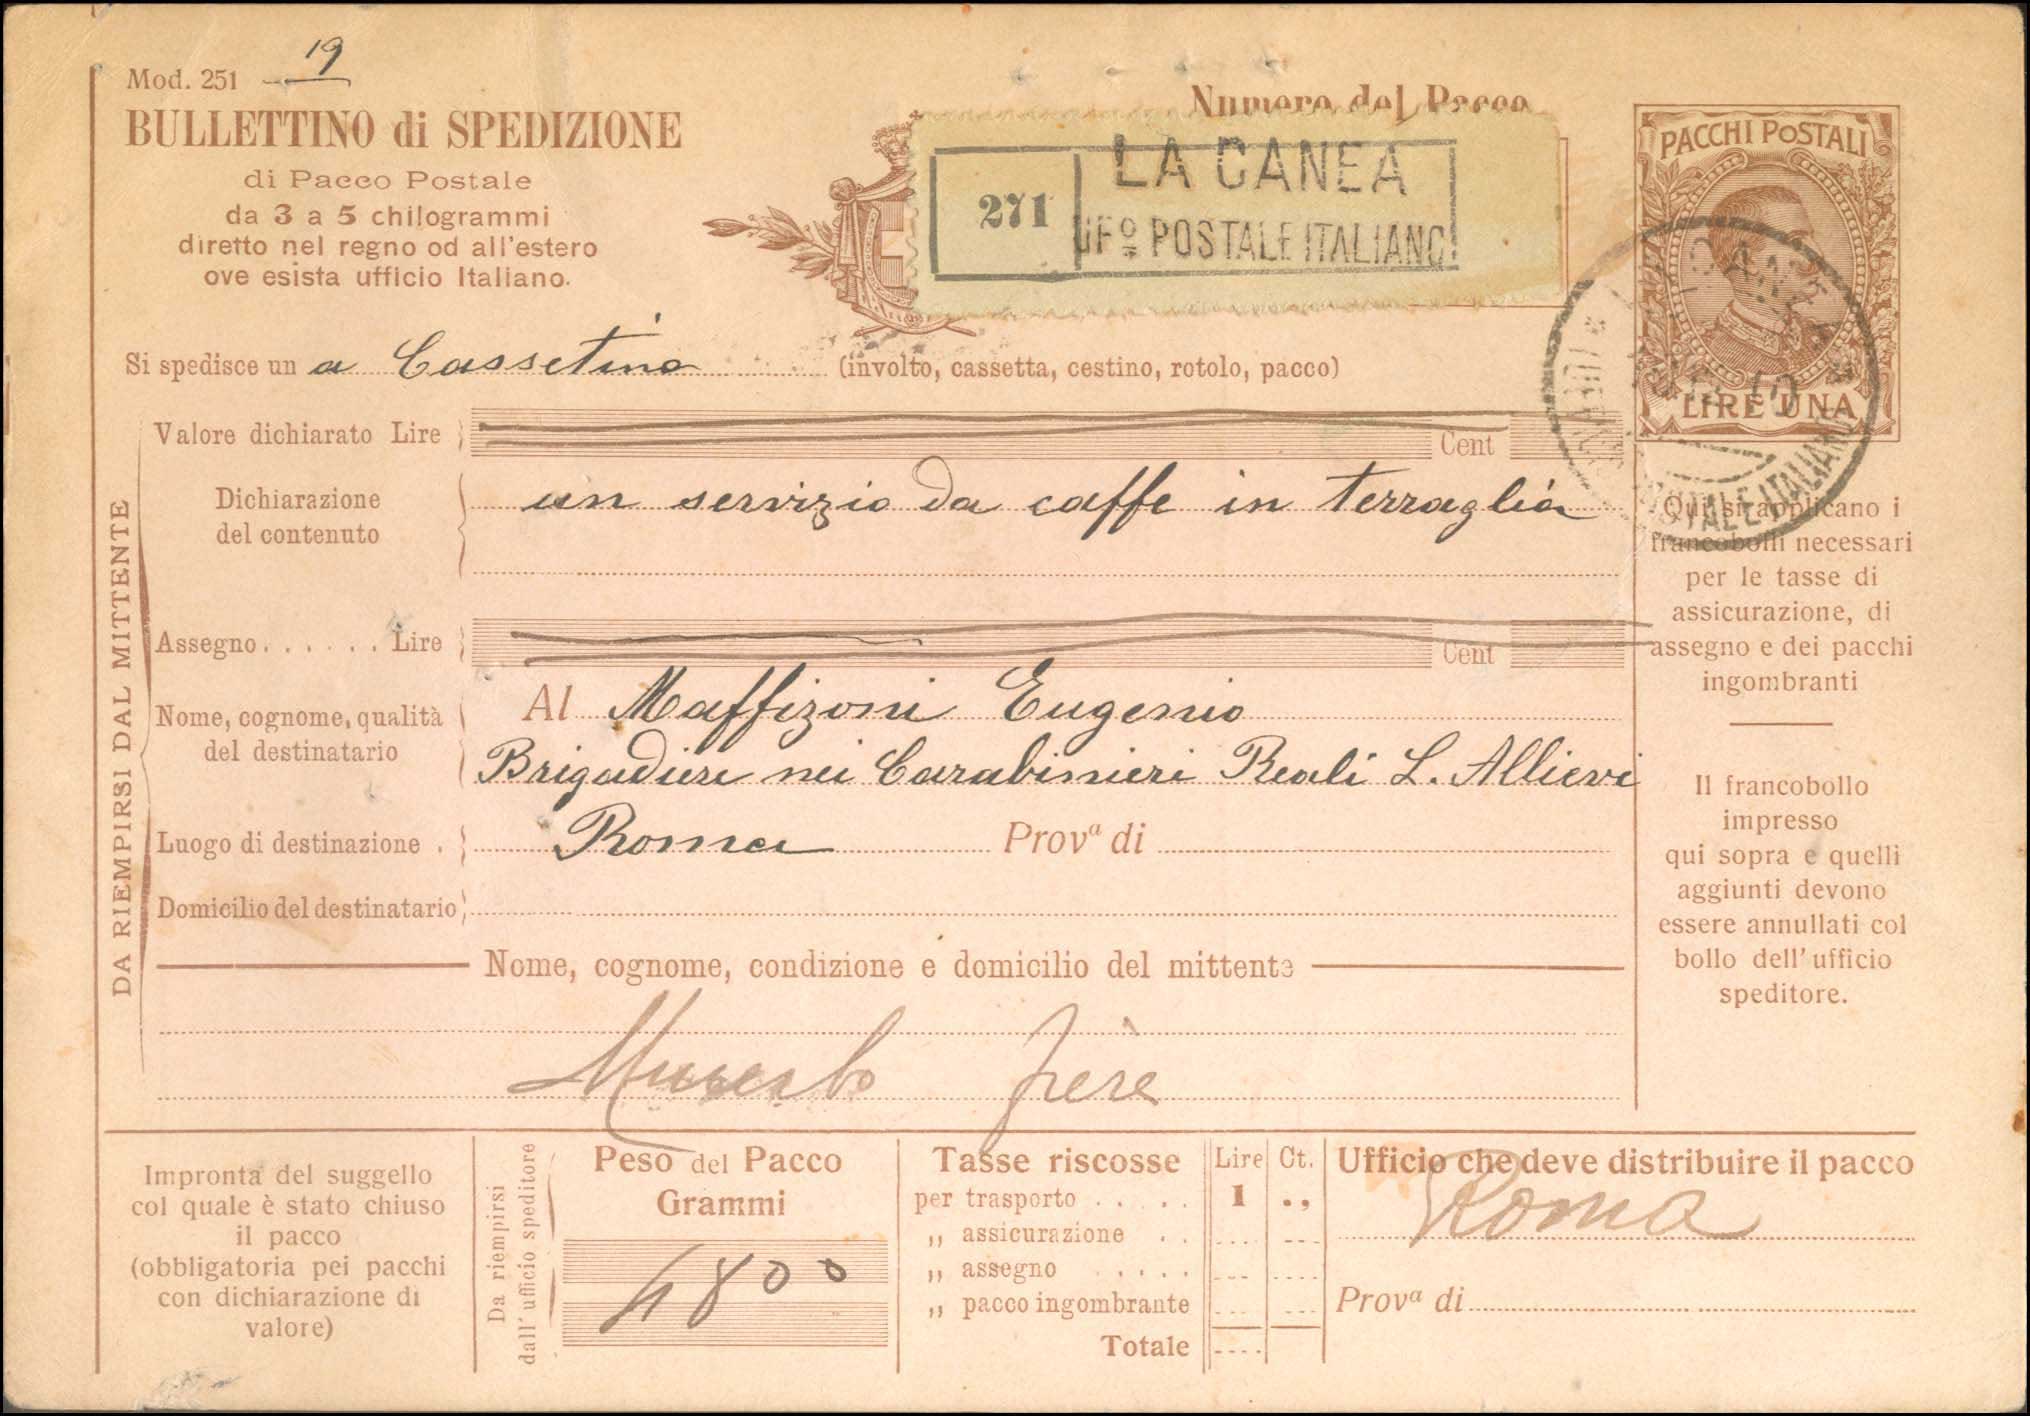 Mod. 251 19
BULLETTINO di SPEDIZIONE
di Pacco Postale
da 3 a 5 chilogrammi
diretto nel regno od all'estero
ove esista ufficio Italiano.
Numero del Pacco
271
LA CANEA
UFº POSTALE ITALIANO
PACCHI POSTALI
LIRE UNA
POSTALE ITALIANO
Si spedisce un a Cassetina (involto, cassetta, cestino, rotolo, pacco)
DA RIEMPIRSI DAL MITTENTE
Valore dichiarato Lire Cent
Dichiarazione
del contenuto
un servizio da caffe in terraglia
Assegno...... Lire Cent
Nome, cognome, qualità
del destinatario
Al Maffizoni Eugenio
Brigadiere nei Carabinieri Reali L. Allievi
Luogo di destinazione . Roma Provª di
Domicilio del destinatario
Nome, cognome, condizione e domicilio del mittente
frère
Qui si applicano i
francobolli necessari
per le tasse di
assicurazione, di
assegno e dei pacchi
ingombranti
Il francobollo
impresso
qui sopra e quelli
aggiunti devono
essere annullati col
bollo dell'ufficio
speditore.
Impronta del suggello
col quale è stato chiuso
il pacco
(obbligatoria pei pacchi
con dichiarazione di
valore)
Da riempirsi
dall'ufficio speditore
Peso del Pacco
Grammi
4800
Tasse riscosse Lire Ct.
per trasporto ..... 1 .,
„ assicurazione ..
„ assegno .....
„ pacco ingombrante
Totale
Ufficio che deve distribuire il pacco
Roma
Provª di